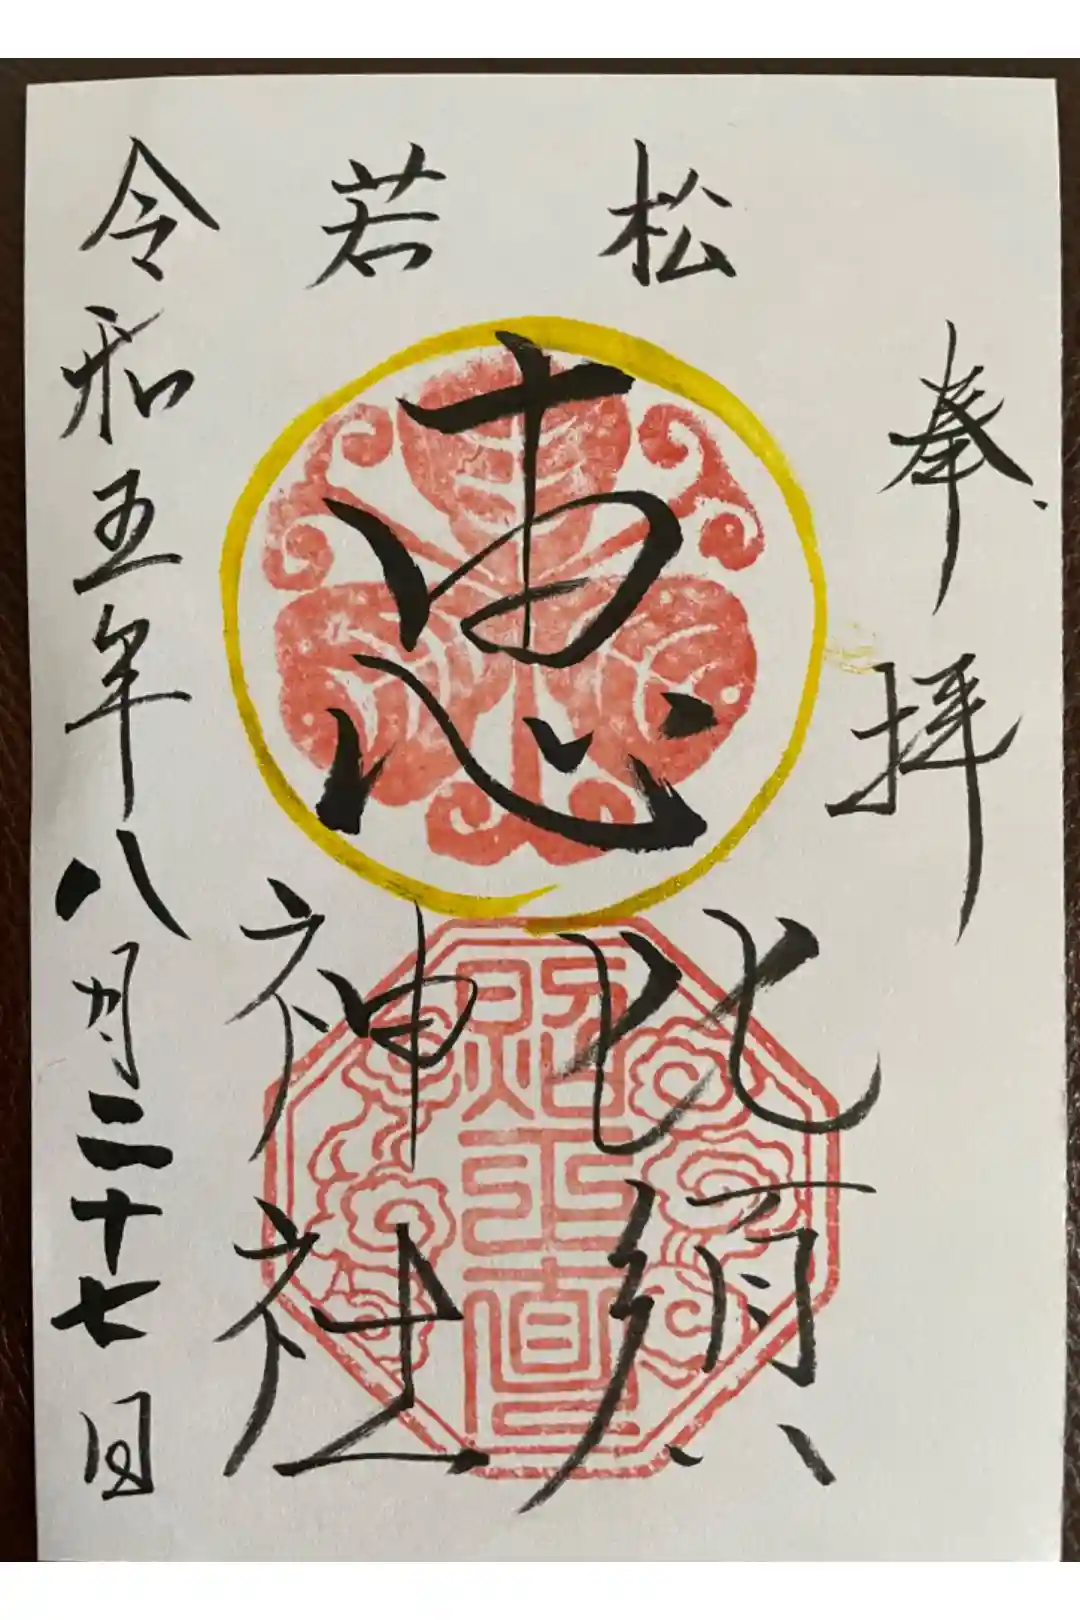 奉拝
若松
恵
比須
神社
照正直
令和五年八月二十七日